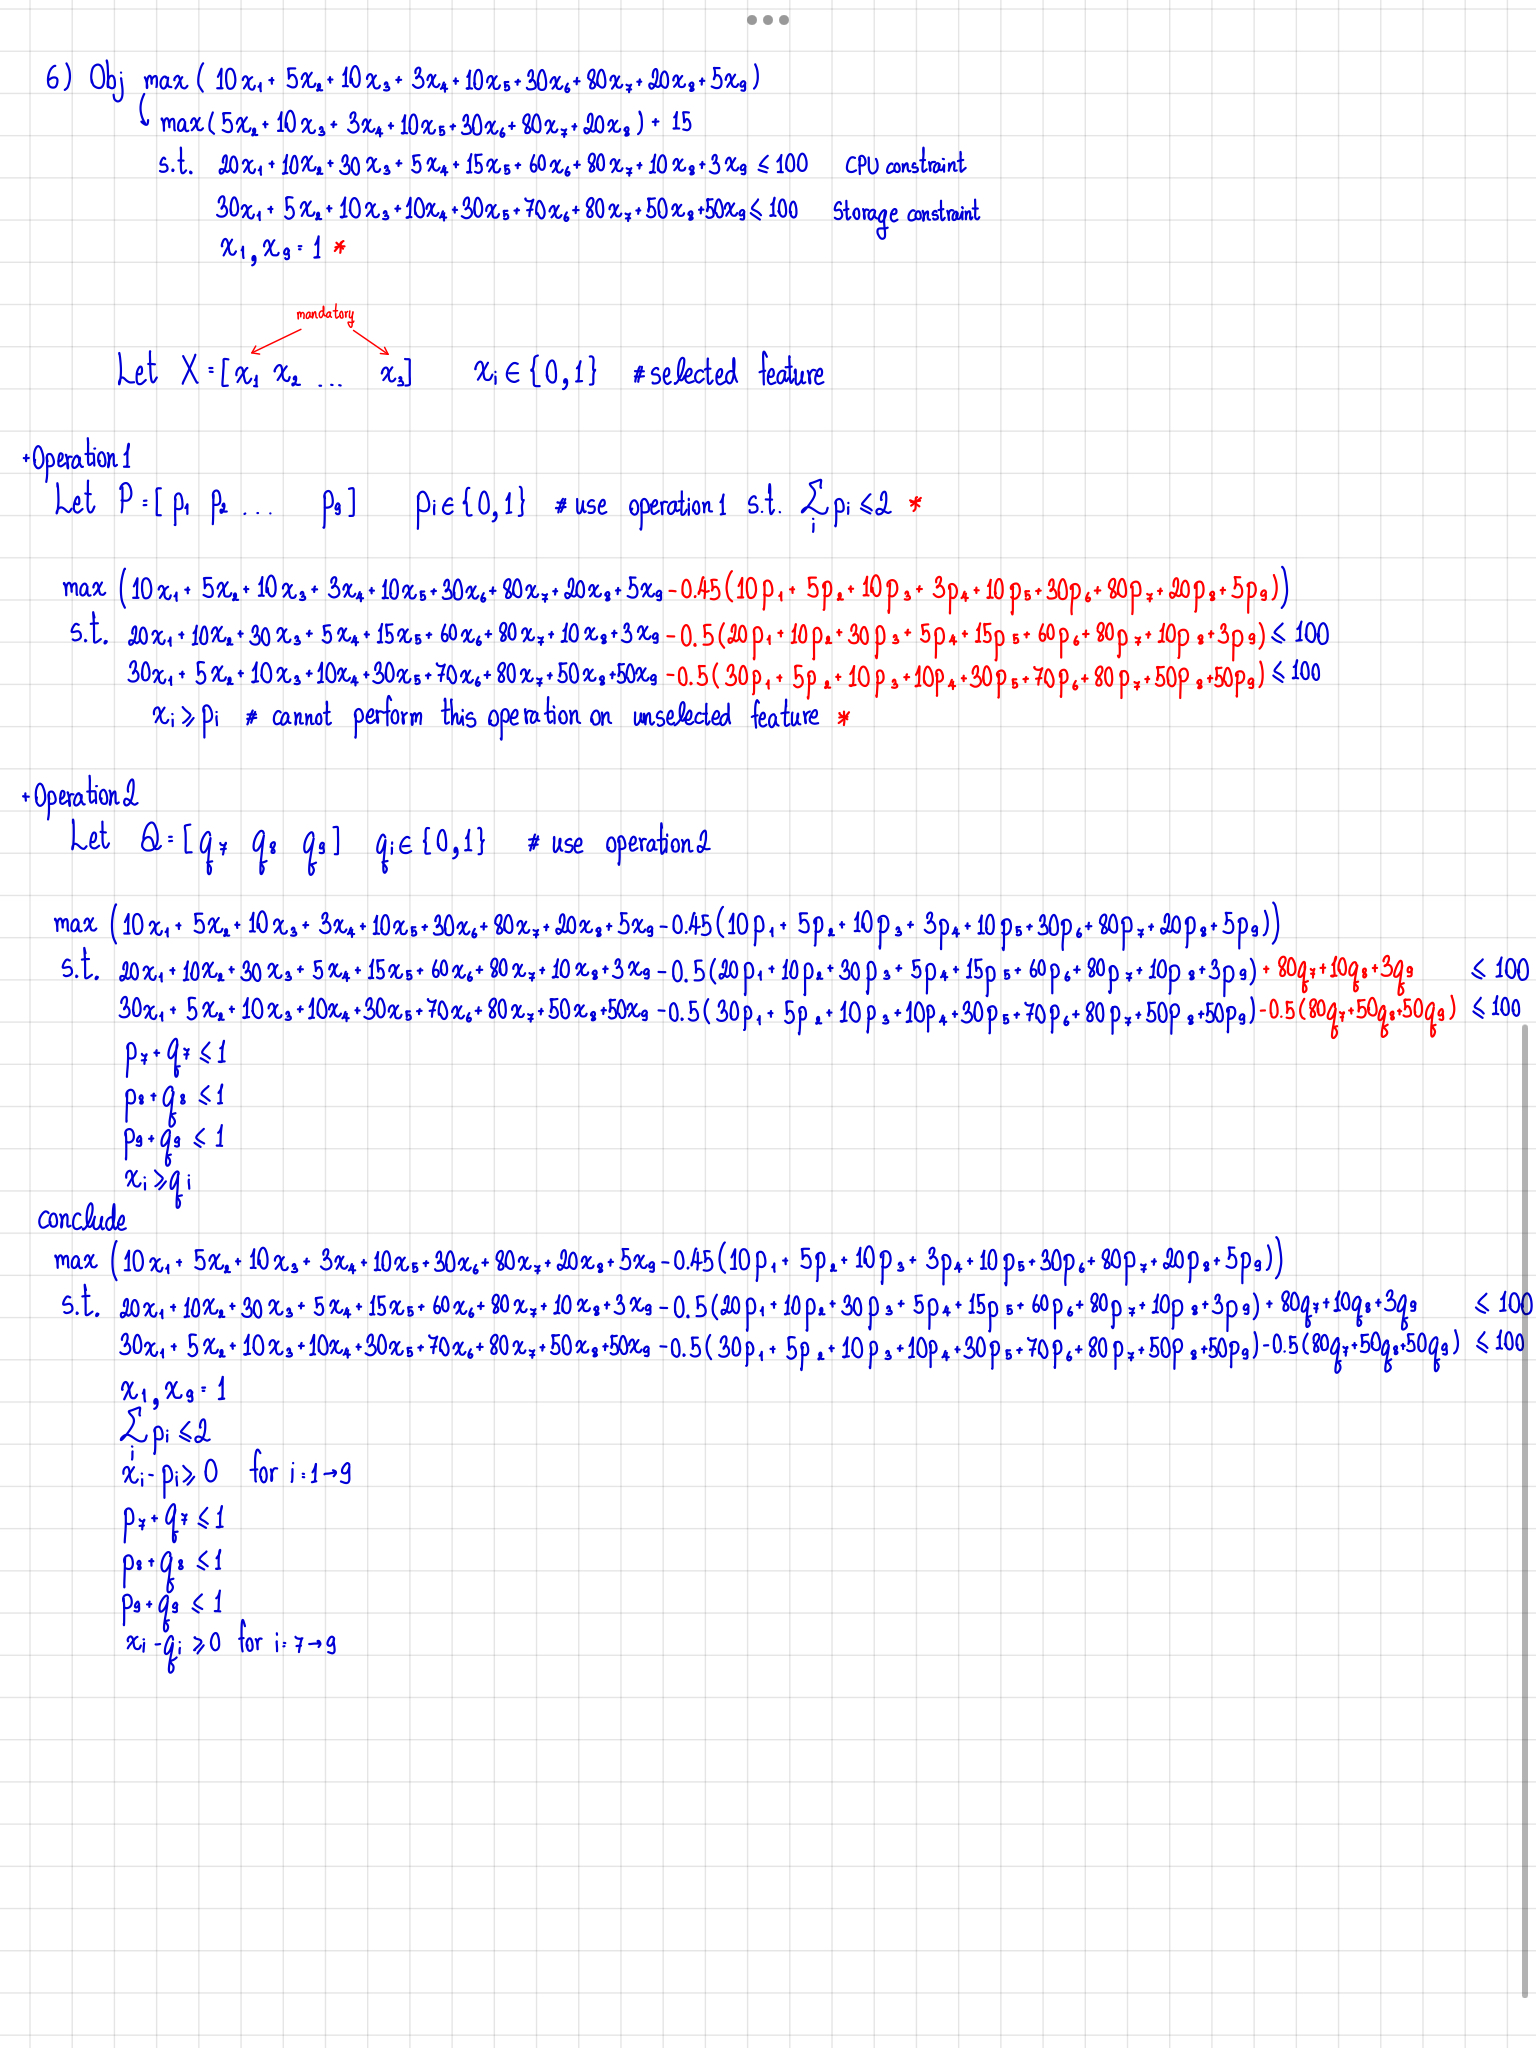 6) Obj max ( 10x₁ + 5x₂ + 10x₃ + 3x₄ + 10x₅ + 30x₆ + 80x₇ + 20x₈ + 5x₉ )
max ( 5x₂ + 10x₃ + 3x₄ + 10x₅ + 30x₆ + 80x₇ + 20x₈ ) + 15
s.t. 20x₁ + 10x₂ + 30x₃ + 5x₄ + 15x₅ + 60x₆ + 80x₇ + 10x₈ + 3x₉ ≤ 100 CPU constraint
30x₁ + 5x₂ + 10x₃ + 10x₄ + 30x₅ + 70x₆ + 80x₇ + 50x₈ + 50x₉ ≤ 100 Storage constraint
x₁, x₉ = 1 *
mandatory
Let X = [ x₁ x₂ ... x₉ ] xᵢ ∈ {0,1} # selected feature
+ Operation 1
Let P = [ p₁ p₂ ... p₉ ] pᵢ ∈ {0,1} # use operation 1 s.t. ∑ᵢ pᵢ ≤ 2 *
max ( 10x₁ + 5x₂ + 10x₃ + 3x₄ + 10x₅ + 30x₆ + 80x₇ + 20x₈ + 5x₉ - 0.45 ( 10p₁ + 5p₂ + 10p₃ + 3p₄ + 10p₅ + 30p₆ + 80p₇ + 20p₈ + 5p₉ ) )
s.t. 20x₁ + 10x₂ + 30x₃ + 5x₄ + 15x₅ + 60x₆ + 80x₇ + 10x₈ + 3x₉ - 0.5 ( 20p₁ + 10p₂ + 30p₃ + 5p₄ + 15p₅ + 60p₆ + 80p₇ + 10p₈ + 3p₉ ) ≤ 100
30x₁ + 5x₂ + 10x₃ + 10x₄ + 30x₅ + 70x₆ + 80x₇ + 50x₈ + 50x₉ - 0.5 ( 30p₁ + 5p₂ + 10p₃ + 10p₄ + 30p₅ + 70p₆ + 80p₇ + 50p₈ + 50p₉ ) ≤ 100
xᵢ ≥ pᵢ # cannot perform this operation on unselected feature *
+ Operation 2
Let Q = [ q₇ q₈ q₉ ] qᵢ ∈ {0,1} # use operation 2
max ( 10x₁ + 5x₂ + 10x₃ + 3x₄ + 10x₅ + 30x₆ + 80x₇ + 20x₈ + 5x₉ - 0.45 ( 10p₁ + 5p₂ + 10p₃ + 3p₄ + 10p₅ + 30p₆ + 80p₇ + 20p₈ + 5p₉ ) )
s.t. 20x₁ + 10x₂ + 30x₃ + 5x₄ + 15x₅ + 60x₆ + 80x₇ + 10x₈ + 3x₉ - 0.5 ( 20p₁ + 10p₂ + 30p₃ + 5p₄ + 15p₅ + 60p₆ + 80p₇ + 10p₈ + 3p₉ ) + 80q₇ + 10q₈ + 3q₉ ≤ 100
30x₁ + 5x₂ + 10x₃ + 10x₄ + 30x₅ + 70x₆ + 80x₇ + 50x₈ + 50x₉ - 0.5 ( 30p₁ + 5p₂ + 10p₃ + 10p₄ + 30p₅ + 70p₆ + 80p₇ + 50p₈ + 50p₉ ) - 0.5 ( 80q₇ + 50q₈ + 50q₉ ) ≤ 100
p₇ + q₇ ≤ 1
p₈ + q₈ ≤ 1
p₉ + q₉ ≤ 1
xᵢ ≥ qᵢ
conclude
max ( 10x₁ + 5x₂ + 10x₃ + 3x₄ + 10x₅ + 30x₆ + 80x₇ + 20x₈ + 5x₉ - 0.45 ( 10p₁ + 5p₂ + 10p₃ + 3p₄ + 10p₅ + 30p₆ + 80p₇ + 20p₈ + 5p₉ ) )
s.t. 20x₁ + 10x₂ + 30x₃ + 5x₄ + 15x₅ + 60x₆ + 80x₇ + 10x₈ + 3x₉ - 0.5 ( 20p₁ + 10p₂ + 30p₃ + 5p₄ + 15p₅ + 60p₆ + 80p₇ + 10p₈ + 3p₉ ) + 80q₇ + 10q₈ + 3q₉ ≤ 100
30x₁ + 5x₂ + 10x₃ + 10x₄ + 30x₅ + 70x₆ + 80x₇ + 50x₈ + 50x₉ - 0.5 ( 30p₁ + 5p₂ + 10p₃ + 10p₄ + 30p₅ + 70p₆ + 80p₇ + 50p₈ + 50p₉ ) - 0.5 ( 80q₇ + 50q₈ + 50q₉ ) ≤ 100
x₁, x₉ = 1
∑ᵢ pᵢ ≤ 2
xᵢ - pᵢ ≥ 0 for i = 1 → 9
p₇ + q₇ ≤ 1
p₈ + q₈ ≤ 1
p₉ + q₉ ≤ 1
xᵢ - qᵢ ≥ 0 for i = 7 → 9